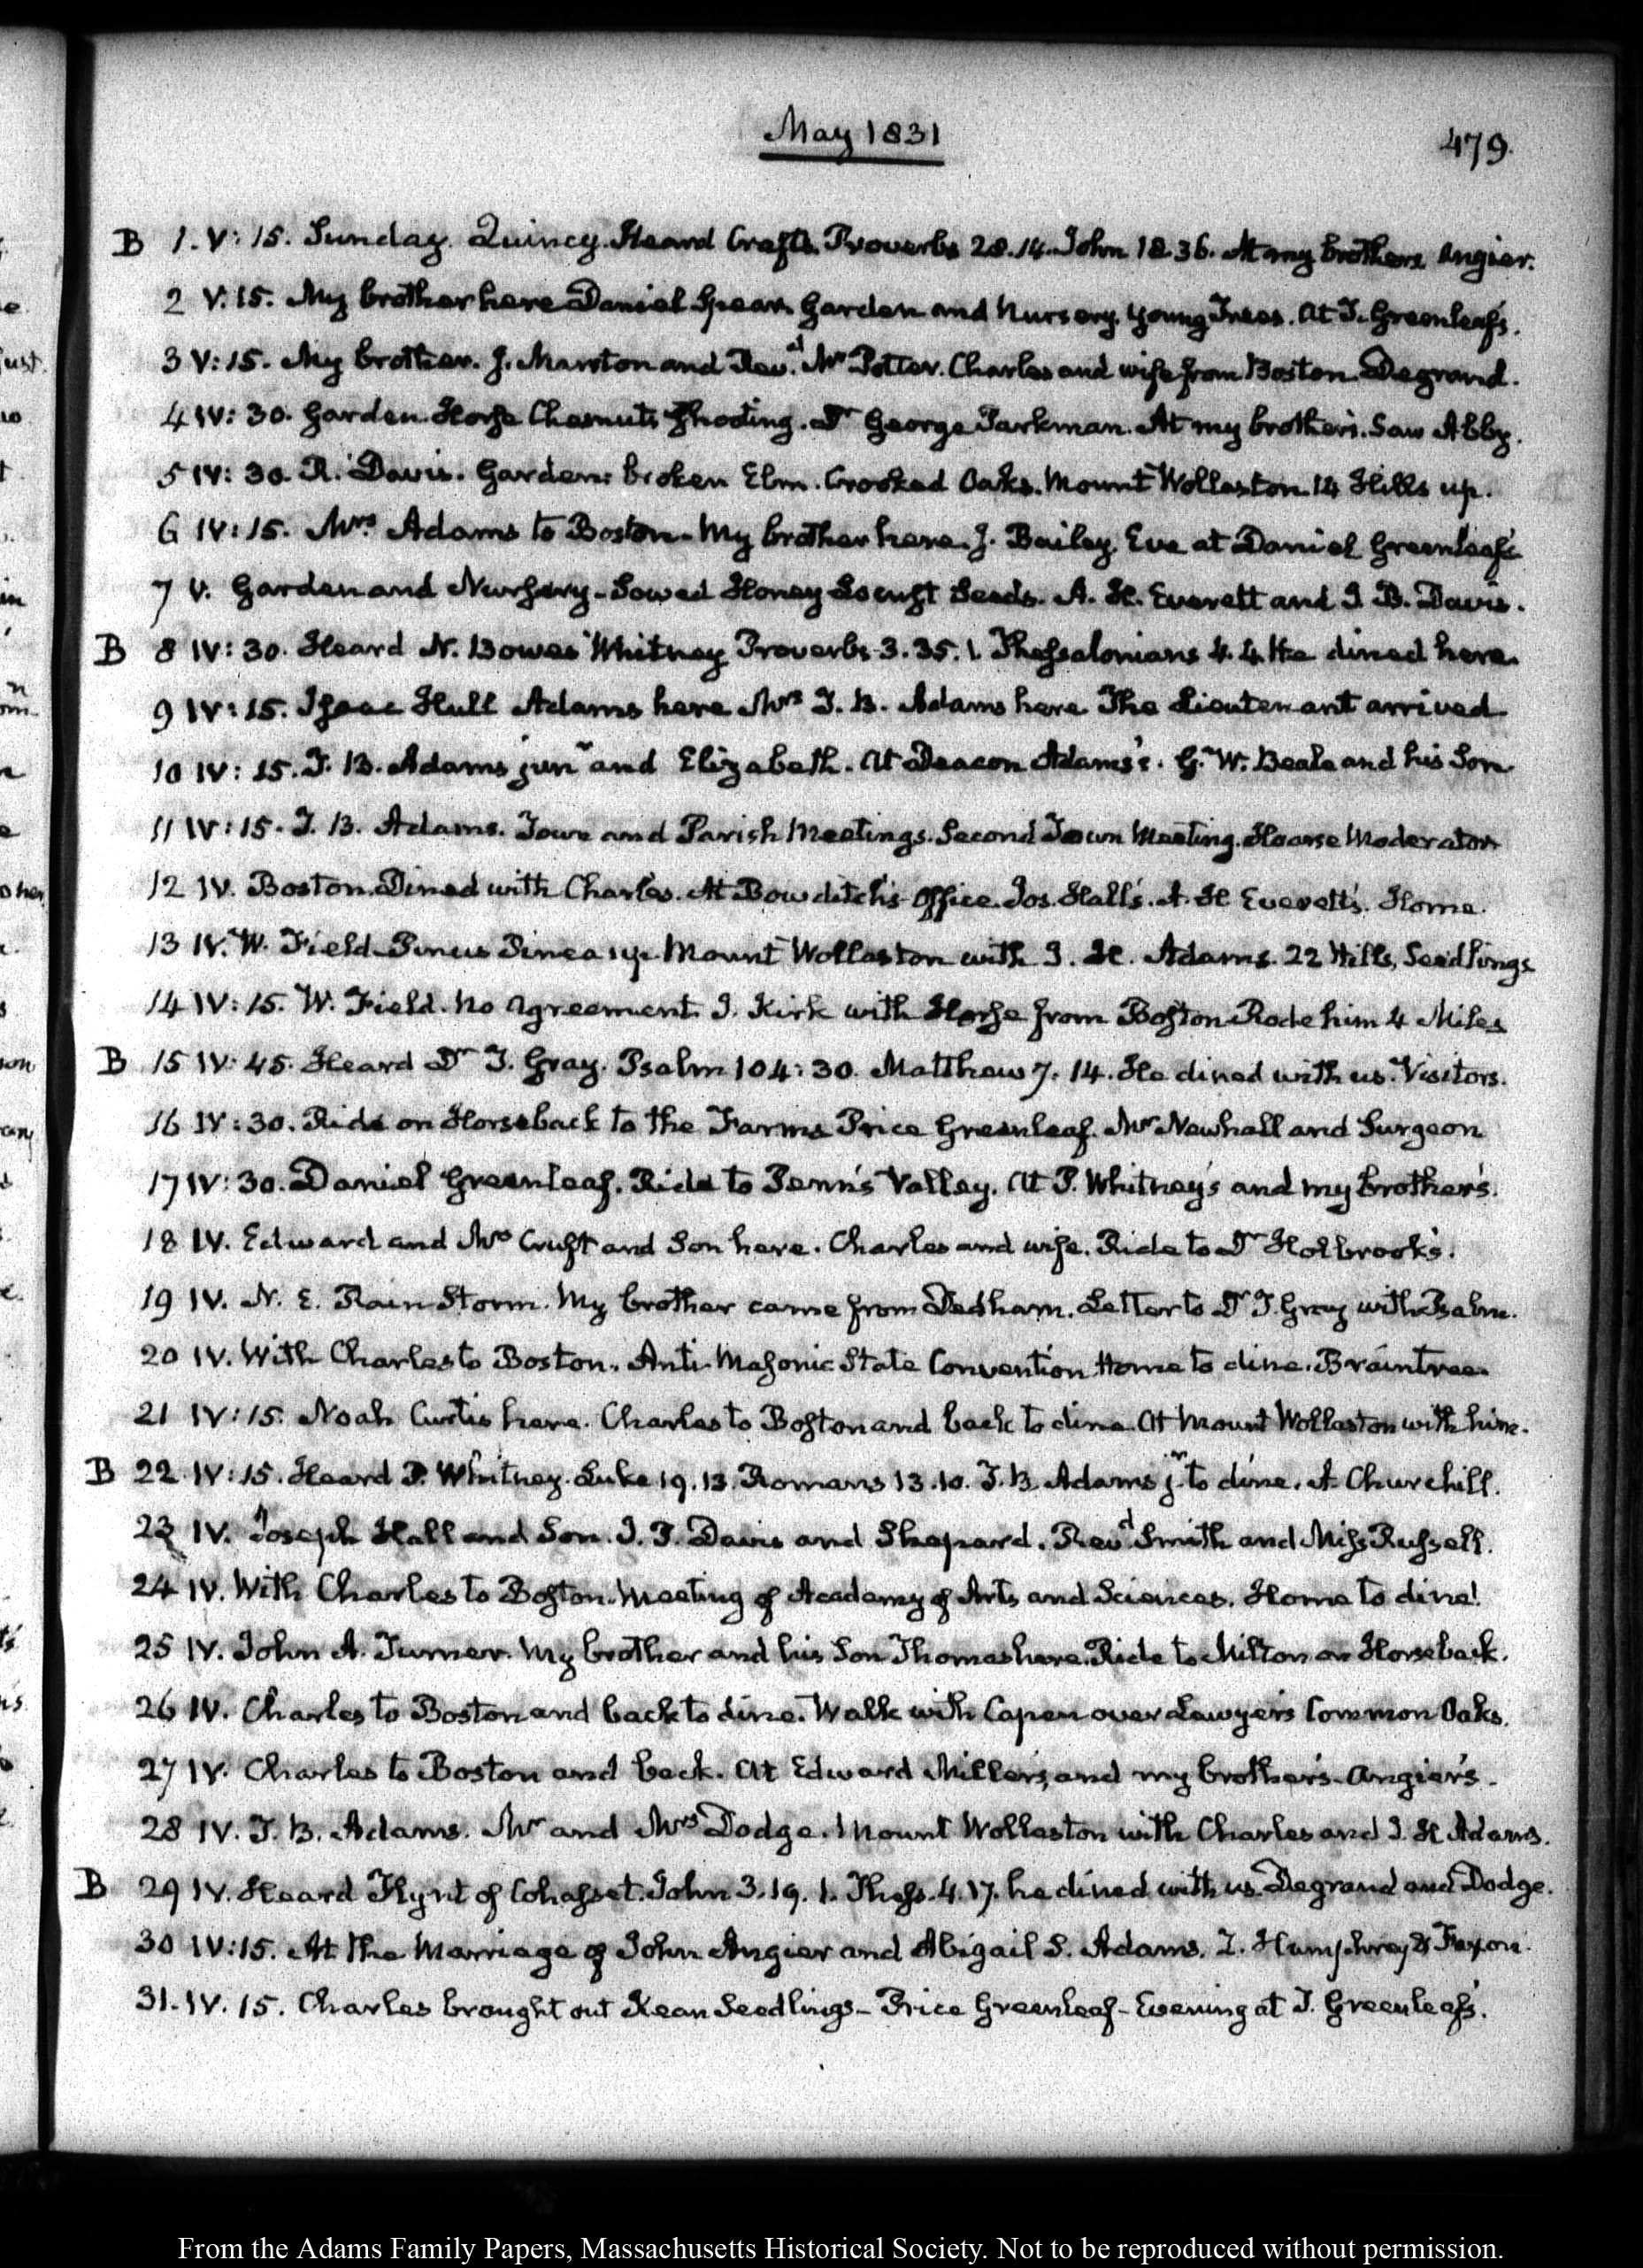 May 1831
479.
B 1. V: 15. Sunday. Quincy. Heard Crafts. Proverbs 28.14. John 18.36. At my brothers. Angier.
2 V: 15. My brother here Daniel Spear. Garden and Nursery. Young Trees. At T. Greenleaf's.
3 V: 15. My brother. J. Marston and Revd. Mr Potter. Charles and wife from Boston. Degrand.
4 IV: 30. Garden. Horse Chesnuts shooting. Dr George Parkman. At my brother's. Saw Abby.
5 IV: 30. R. Davis. Garden: broken Elm. Crooked Oaks. Mount Wollaston. 14 Hills up.
6 IV: 15. Mrs. Adams to Boston. My brother here. J. Bailey. Eve at Daniel Greenleaf's
7 V. Garden and Nursery – Sowed Honey Locust Seeds. A. H. Everett and I. B. Davis.
B 8 IV: 30. Heard N. Bowes Whitney Proverbs 3. 35. 1. Thessalonians 4. 4. He dined here.
9 IV: 15. Isaac Hull Adams here Mrs T. B. Adams here. The Lieutenant arrived
10 IV: 15. T. B. Adams junr and Elizabeth. At Deacon Adams's. G. W. Beale and his Son.
11 IV: 15. T. B. Adams. Town and Parish Meetings. Second Town Meeting. Hoarse Moderator
12 IV. Boston. Dined with Charles. At Bowditch's office. Jos. Hall's. A. H Everett's. Home.
13 IV. W. Field. Pinus Pinea up. Mount Wollaston with I. H. Adams. 22 Hills, Seedlings
14 IV: 15. W. Field. no agreement. I. Kirk with Horse from Boston Rode him 4 Miles
B 15 IV: 45. Heard Dr T. Gray. Psalm 104: 30. Matthew 7. 14. He dined with us. Visitors.
16 IV: 30. Ride on Horseback to the Farms Price Greenleaf. Mr Newhall and Surgeon
17 IV: 30. Daniel Greenleaf. Ride to Penn's Valley. At P. Whitney's and my brother's.
18 IV. Edward and Mrs Cruft and Son here. Charles and wife. Ride to Dr Holbrook's.
19 IV. N. E. Rain Storm. My brother came from Dedham. Letter to Dr T. Gray with Psalm.
20 IV. With Charles to Boston. Anti-Masonic State Convention Home to dine. Braintree.
21 IV: 15. Noah Curtis here. Charles to Boston and back to dine. At Mount Wollaston with him.
B 22 IV: 15. Heard P. Whitney. Luke 19. 13. Romans 13. 10. T. B. Adams jr. to dine. A. Churchill.
23 IV. Joseph Hall and Son. I. P. Davis and Shepard. Revd. Smith and Miss Russell.
24 IV. With Charles to Boston. Meeting of Academy of Arts and Sciences. Home to dine!
25 IV. John A. Turner. My brother and his Son Thomas here. Ride to Milton on Horseback.
26 IV. Charles to Boston and back to dine. Walk with Capen over Lawyer's Common Oaks.
27 IV. Charles to Boston and back. At Edward Miller's, and my brother's. Angier's.
28 IV. T. B. Adams. Mr and Mrs Dodge. Mount Wollaston with Charles and I. H Adams.
B 29 IV. Heard Flynt of Cohasset. John 3. 19. 1. Thess. 4. 17. he dined with us. Degrand and Dodge.
30 IV: 15. At the Marriage of John Angier and Abigail S. Adams. L. Humphrey & Faxon.
31. IV. 15. Charles brought out Kean Seedlings – Price Greenleaf – Evening at T. Greenleaf's.
From the Adams Family Papers, Massachusetts Historical Society. Not to be reproduced without permission.